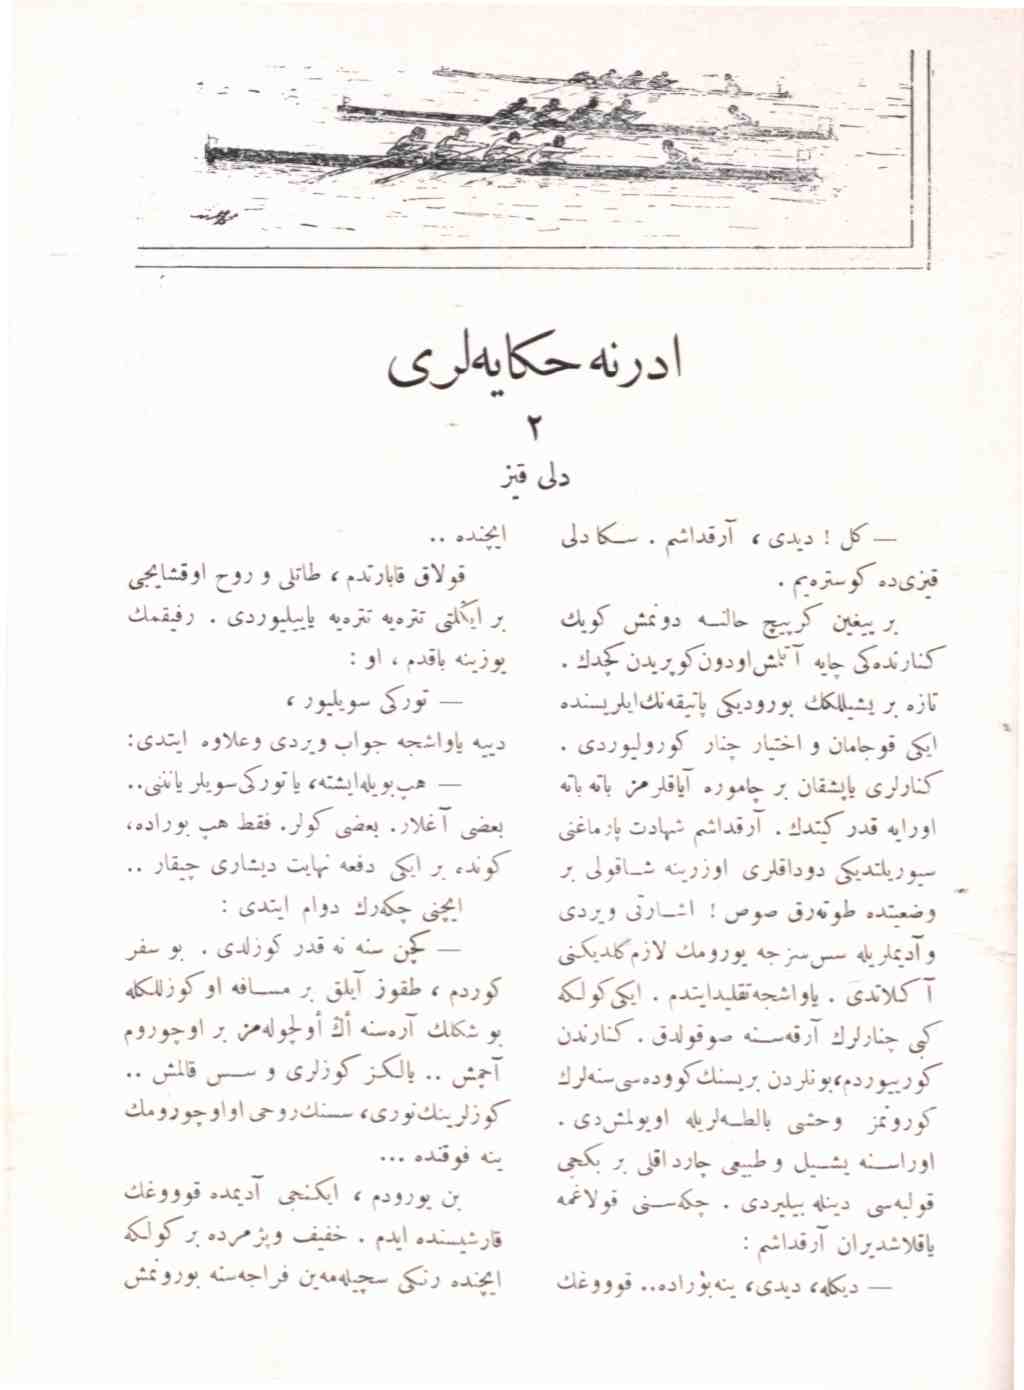 ادرنه حكايه‌لری
٢
دلی قیز
— كل ! دیدی ، آرقداشم . سكا دلی
قیزی‌ده كوستره‌یم .
بر ییغین كرپیچ حالنه دونمش كویك
كنارنده‌كی چایه آتلمش اودون كوپریدن كچدك .
تازه بر یشیللكك بورودیكی پاتیقه‌نك ایلریسنده
ایكی قوجامان و اختیار چنار كورولیوردی .
كنارلری یاپشقان بر چاموره آیاقلرمز باته باته
اورایه قدر كیتدك . آرقداشم شهادت پارماغنی
سیوریلتدیكی دوداقلری اوزرینه شاقولی بر
وضعیتده طوته‌رق صوص ! اشارتی ویردی
و آدیملریله سس‌سزجه یورومك لازم كلدیكنی
آكلاتدی . یاواشجه تقلید ایتدم . ایكی كولكه
كبی چنارلرك آرقه‌سنه صوقولدق . كنارندن
كورییوردم، بونلردن بریسنك كووده‌سی سنه‌لرك
كورونمز وحشی بالطه‌لریله اویولمش‌دی .
اوراسنه یشیل و طبیعی چارداقلی بر بكجی
قولبه‌سی دینله بیلیردی . چكه‌سنی قولاغمه
یاقلاشدیران آرقداشم :
— دیكله، دیدی، ینه بوراده.. قوووغك
ایچنده ..
قولاق قابارتدم ، طاتلی و روح اوقشایجی
بر ایكلتی تتره‌یه تتره‌یه یاییلیوردی . رفیقمك
یوزینه باقدم ، او :
— توركی سویلیور ،
دییه یاواشجه جواب ویردی وعلاوه ایتدی:
— هپ بویله ایشته، یا توركی سویلر یا نننی..
بعضی آغلار. بعضی كولر. فقط هپ بوراده،
كونده بر ایكی دفعه نهایت دیشاری چیقار ..
ایچنی چكه‌رك دوام ایتدی :
— كچن سنه نه قدر كوزلدی . بو سفر
كوردم ، طقوز آیلق بر مسافه او كوزللكله
بو شكلك آره‌سنه اڭ أولچوله‌مز بر اوچوروم
آچمش .. یالكز كوزلری و سس قالمش ..
كوزلرینك نوری، سسنك روحی او اوچورومك
ینه فوقنده ...
بن یورودم ، ایكنجی آدیمده قوووغك
قارشیسنده ایدم . خفیف و پژمرده بر كولكه
ایچنده رنكی سچیله‌مه‌ین فراجه‌سنه بورونمش